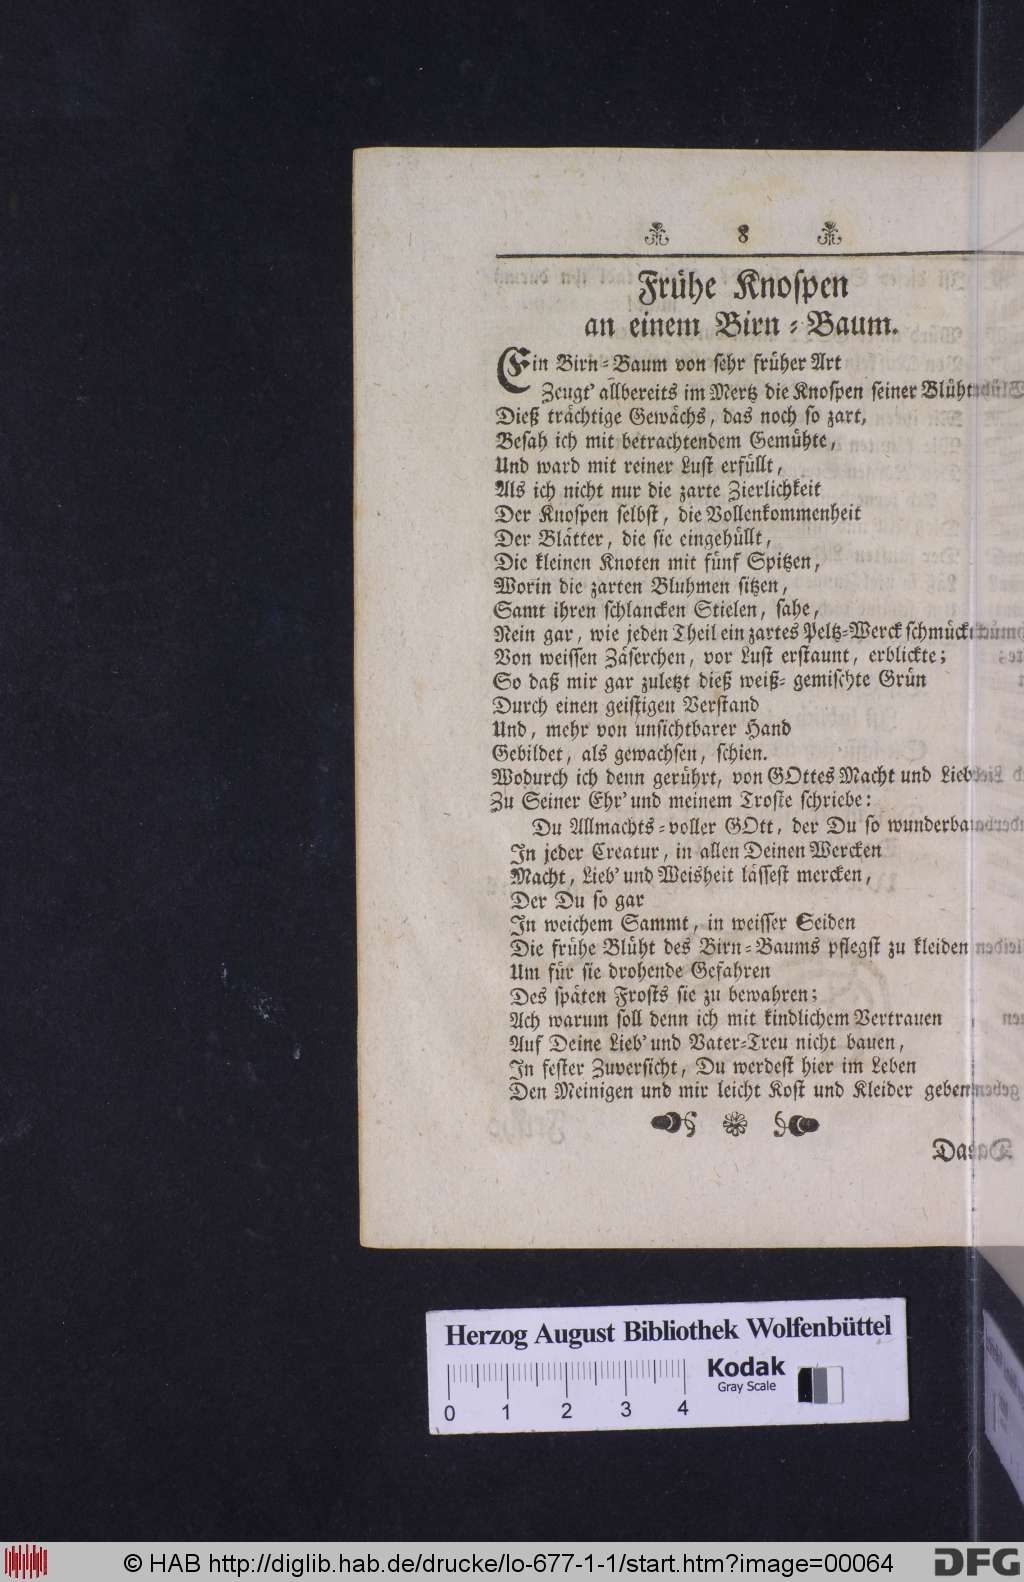 8
Frühe Knospen
an einem Birn-Baum.
Ein Birn-Baum von sehr früher Art
Zeugt' allbereits im Mertz die Knospen seiner Blüht
Dieß trächtige Gewächs, das noch so zart,
Besah ich mit betrachtendem Gemühte,
Und ward mit reiner Lust erfüllt,
Als ich nicht nur die zarte Zierlichkeit
Der Knospen selbst, die Vollenkommenheit
Der Blätter, die sie eingehüllt,
Die kleinen Knoten mit fünf Spitzen,
Worin die zarten Bluhmen sitzen,
Samt ihren schlancken Stielen, sahe,
Nein gar, wie jeden Theil ein zartes Peltz-Werck schmückt
Von weissen Zäserchen, vor Lust erstaunt, erblickte;
So daß mir gar zuletzt dieß weiß-gemischte Grün
Durch einen geistigen Verstand
Und, mehr von unsichtbarer Hand
Gebildet, als gewachsen, schien.
Wodurch ich denn gerührt, von GOttes Macht und Liebe
Zu Seiner Ehr' und meinem Troste schriebe:
Du Allmachts-voller GOtt, der Du so wunderba
In jeder Creatur, in allen Deinen Wercken
Macht, Lieb' und Weisheit lässest mercken,
Der Du so gar
In weichem Sammt, in weisser Seiden
Die frühe Blüht des Birn-Baums pflegst zu kleiden
Um für sie drohende Gefahren
Des späten Frosts sie zu bewahren;
Ach warum soll denn ich mit kindlichem Vertrauen
Auf Deine Lieb' und Vater-Treu nicht bauen,
In fester Zuversicht, Du werdest hier im Leben
Den Meinigen und mir leicht Kost und Kleider geben
Das
Herzog August Bibliothek Wolfenbüttel
Kodak
Gray Scale
0 1 2 3 4
© HAB http://diglib.hab.de/drucke/lo-677-1-1/start.htm?image=00064
DFG